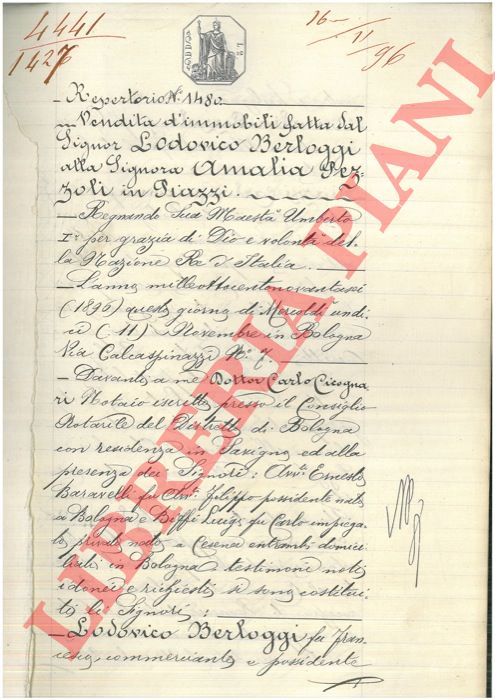 4441
1427
16
11
96
Repertorio N.° 1480
Vendita d'immobili fatta dal
Signor Lodovico Berloggi
alla Signora Amalia Pez-
zoli in Piazzi
Regnando Sua Maestà Umberto
I° per grazia di Dio e volontà del-
la Nazione Re d'Italia.
L'anno milleottocentonovantasei
(1896) questo giorno di Mercoldì undi-
ci (11) Novembre in Bologna
Via Calcaspinazzi N.° 7.
Davanti a me Dottor Carlo Cicogna
ri Notaio iscritto presso il Consiglio
Notarile del Distretto di Bologna
con residenza in Savigno ed alla
presenza dei Signori: Avv. Ernesto
Baravelli fu Avv. Filippo possidente nato
a Bologna e Biffi Luigi fu Carlo impiega-
to privato nato a Cesena entrambi domici-
liati in Bologna testimoni noti
idonei e richiesti si sono costitui-
ti li Signori:
Lodovico Berloggi fu Fran-
cesco, commerciante e possidente
LIBRERIA PIANI